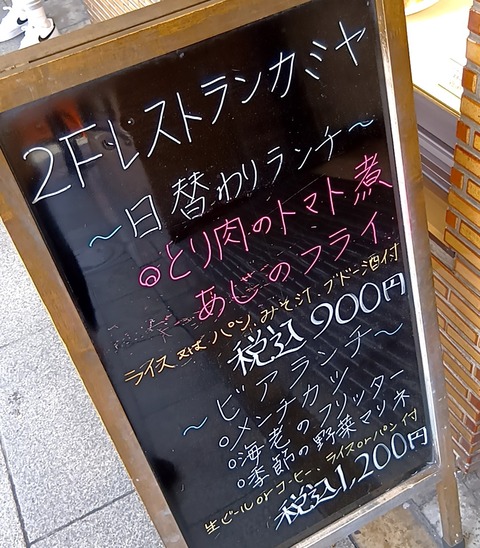 2Fレストランカミヤ
〜日替わりランチ〜
◎とり肉のトマト煮
あじのフライ
ライス又はパン、みそ汁、ブドー酒付
税込900円
〜ビアランチ〜
○メンチカツ
○海老のフリッター
○季節の野菜マリネ
生ビールorコーヒー、ライスorパン付
税込1,200円